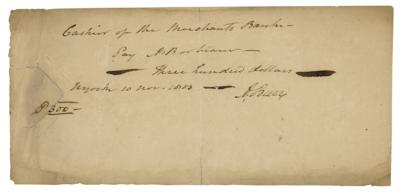 Cashier of the Merchants Bank
Pay or bearer
Three hundred dollars
NYork 10 Nov. 1803
A. Burr
$ 300 -